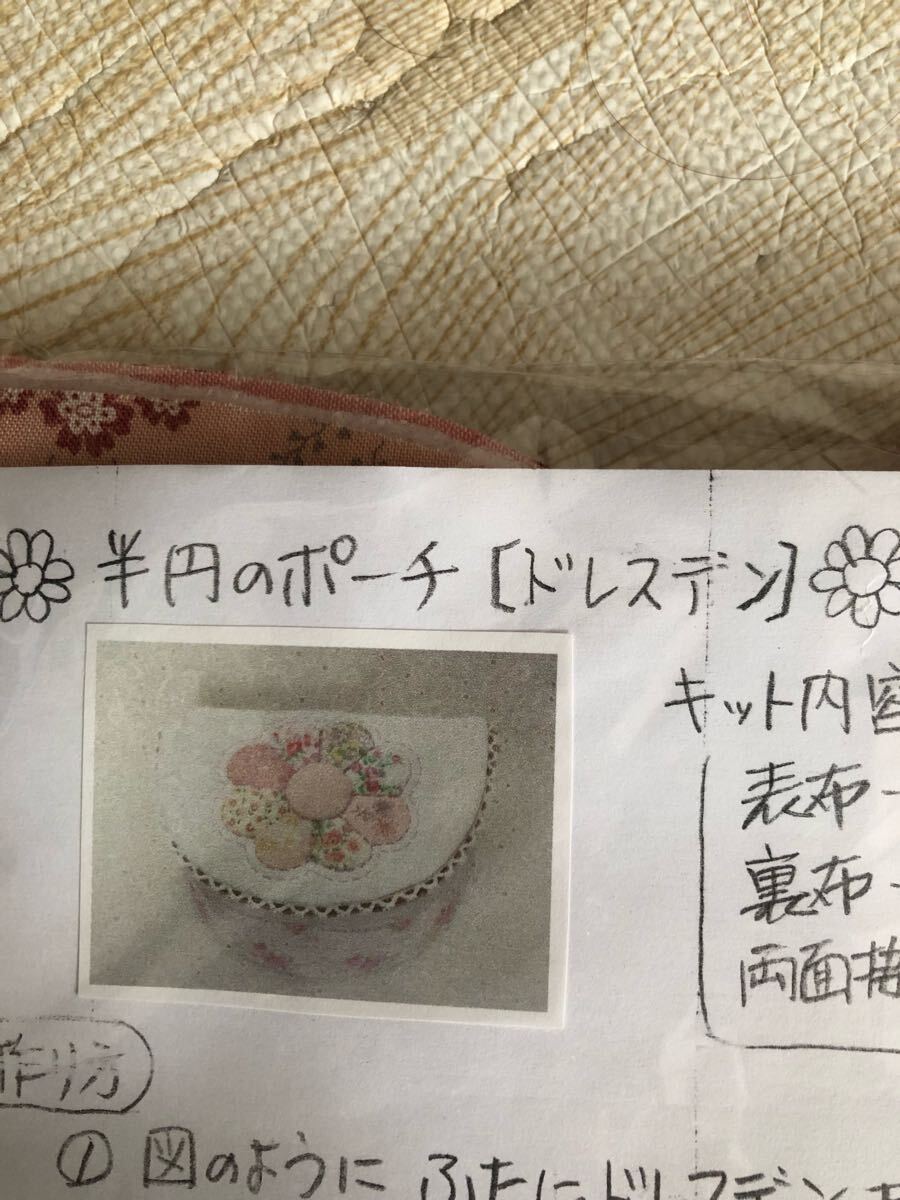 半円のポーチ [ドレスデン]
キット内容
表布
裏布
両面接
作り方
① 図のように ふたにドレスデン